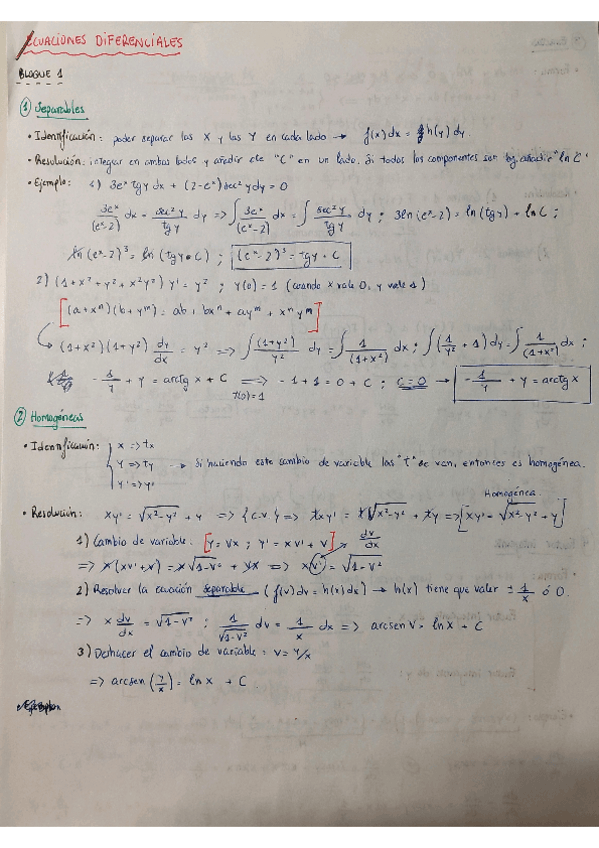 ECUACIONES DIFERENCIALES
BLOQUE 1
① Separables
• Identificación: poder separar las X y las Y en cada lado → f(x)dx = h(y)dy.
• Resolución: integrar en ambos lados y añadir cte "C" en un lado. Si todos los componentes son log añadir "ln C"
• Ejemplo: 1) 3eˣ tgy dx + (2-eˣ) sec²y dy = 0
3eˣ/(eˣ-2) dx = sec²y/tgy dy => ∫ 3eˣ/(eˣ-2) dx = ∫ sec²y/tgy dy ; 3ln(eˣ-2) = ln(tgy) + lnC ;
ln(eˣ-2)³ = ln(tgy·C) ; (eˣ-2)³ = tgy·C
2) (1+x²+y²+x²y²) y' = y² ; y(0) = 1 (cuando x vale 0, y vale 1)
[(a+xⁿ)(b+yᵐ) = ab + bxⁿ + ayᵐ + xⁿyᵐ]
(1+x²)(1+y²) dy/dx = y² => ∫ (1+y²)/y² dy = ∫ 1/(1+x²) dx ; ∫(1/y² + 1) dy = ∫ 1/(1+x²) dx ;
-1/y + y = arctgx + C => -1+1 = 0 + C ; C=0 → -1/y + y = arctgx
y(0)=1
② Homogéneas
• Identificación: { x => tx
y => ty → Si haciendo este cambio de variable las "t" se van, entonces es homogénea.
y' => y'
Homogénea.
• Resolución: xy' = √(x²-y²) + y => {C.V.} => txy' = t√(x²-y²) + ty => [xy' = √(x²-y²) + y]
1) Cambio de variable: [y = vx ; y' = xv' + v] dv/dx
=> x(xv'+v) = x√(1-v²) + vx => xv' = √(1-v²)
2) Resolver la ecuación separable (f(v)dv = h(x)dx) → h(x) tiene que valer ± 1/x ó 0.
=> x dv/dx = √(1-v²) ; 1/√(1-v²) dv = 1/x dx => arcsen v = lnx + C
3) Deshacer el cambio de variable: v = y/x
=> arcsen(y/x) = lnx + C.